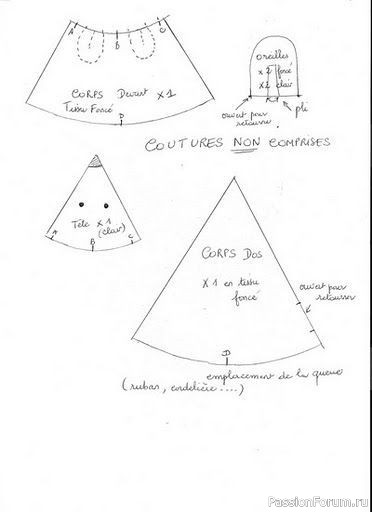 A B C
CORPS Devant x1
Tissu Foncé
D
oreilles
x 2 foncé
x 2 clair
ouvert pour
retourner
pli
COUTURES NON COMPRISES
Tête x 1
(clair)
A B C
CORPS DOS
x 1 en tissu
foncé
ouvert pour
retourner
D
emplacement de la queue
(ruban, cordelière ....)
PassionForum.ru